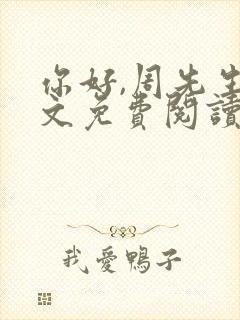 你好,周先生
文免費閱讀
我愛鴨子